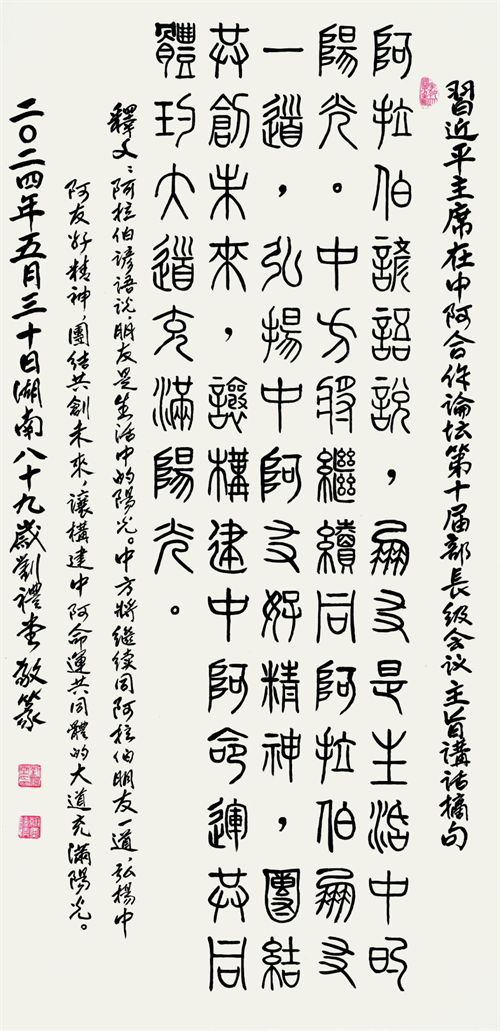 習近平主席在中阿合作论坛第十届部長级会议主旨講话摘句
阿拉伯諺語説，朋友是生活中的
陽光。中方將繼續同阿拉伯朋友
一道，弘揚中阿友好精神，團結
共創未來，讓構建中阿命運共同
體的大道充滿陽光。
釋文：阿拉伯谚语说，朋友是生活中的陽光。中方將继续同阿拉伯朋友一道，弘楊中
阿友好精神，團结共創未來，讓構建中阿命運共同體的大道充滿陽光。
二〇二四年五月三十日湖南八十九歲劉禮堂敬篆